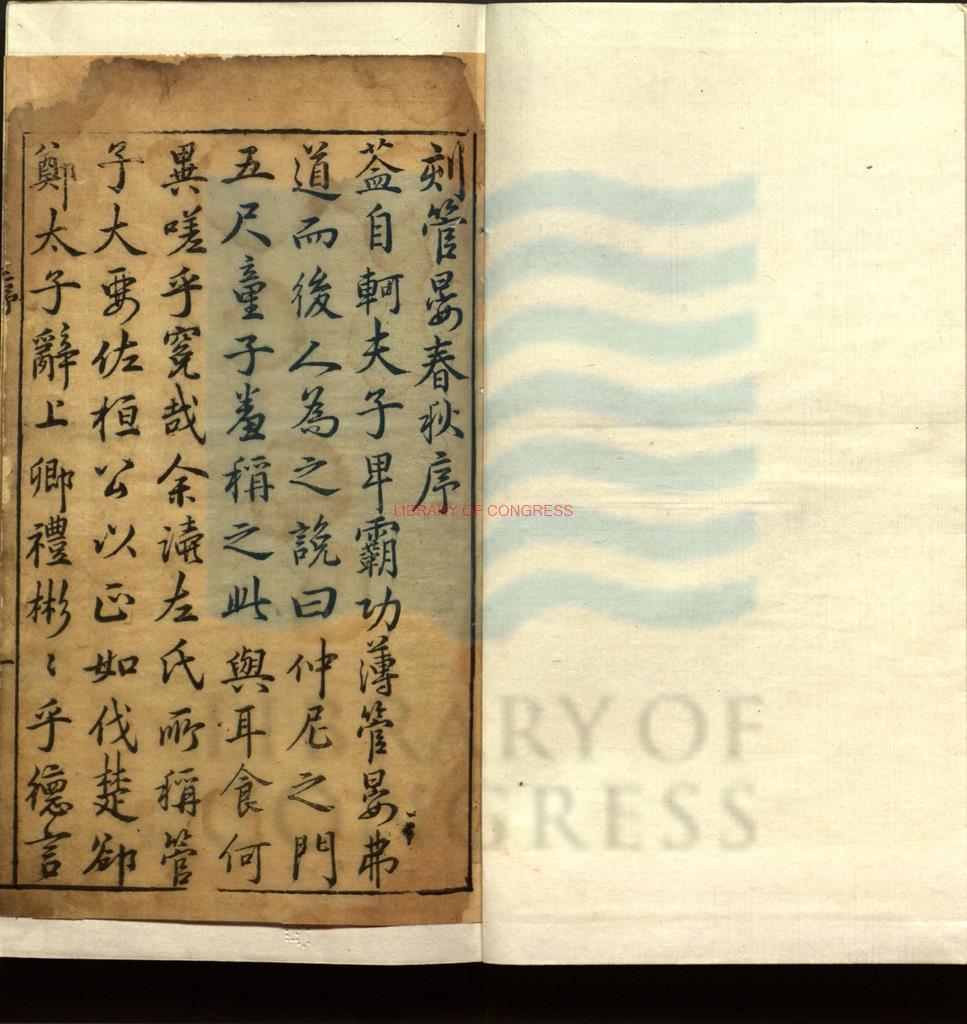 刻管晏春秋序
葢自軻夫子卑霸功薄管晏弗
道而後人為之說曰仲尼之門
五尺童子羞稱之此與耳食何
異嗟乎寃哉余讀左氏所稱管
子大要佐桓公以正如伐楚卻
鄭太子辭上卿禮彬〻乎德言
序
一
LIBRARY OF CONGRESS
LIBRARY OF
CONGRESS